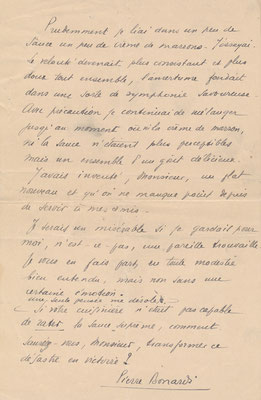 Prudemment je liai dans un peu de
sauce un peu de crème de marrons. J'essayai.
Le velouté devenait plus consistant et plus
doux tout ensemble, l'amertume fondait
dans une sorte de symphonie savoureuse.
Avec précaution je continuai de mélanger
jusqu'au moment où ni la crème de marron,
ni la sauce n'étaient plus perceptibles
mais un ensemble d'un goût délicieux.
J'avais inventé, Monsieur, un plat
nouveau et qu'on ne manque point depuis
de servir à mes amis.
Je serais un misérable si je gardais pour
moi, n'est-ce-pas, une pareille trouvaille
Je vous en fais part, en toute modestie
bien entendu, mais non sans une
certaine émotion.
une seule pensée me désole.
Si votre cuisinière n'était pas capable
de rater la sauce suprême, comment
sauriez-vous, Monsieur, transformer ce
désastre en victoire ?
Pierre Bonardi